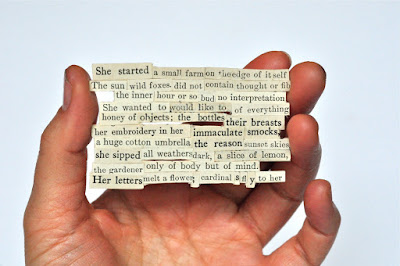 She started a small farm on the edge of itself
The sun wild foxes did not contain thought or fib
the inner hour or so bud no interpretation
She wanted to would like to of everything
honey of objects; the bottles their breasts
her embroidery in her immaculate smocks,
a huge cotton umbrella the reason sunset skies
she sipped all weathers dark, a slice of lemon,
the gardener only of body but of mind.
Her letters melt a flower, cardinal s fl y to her